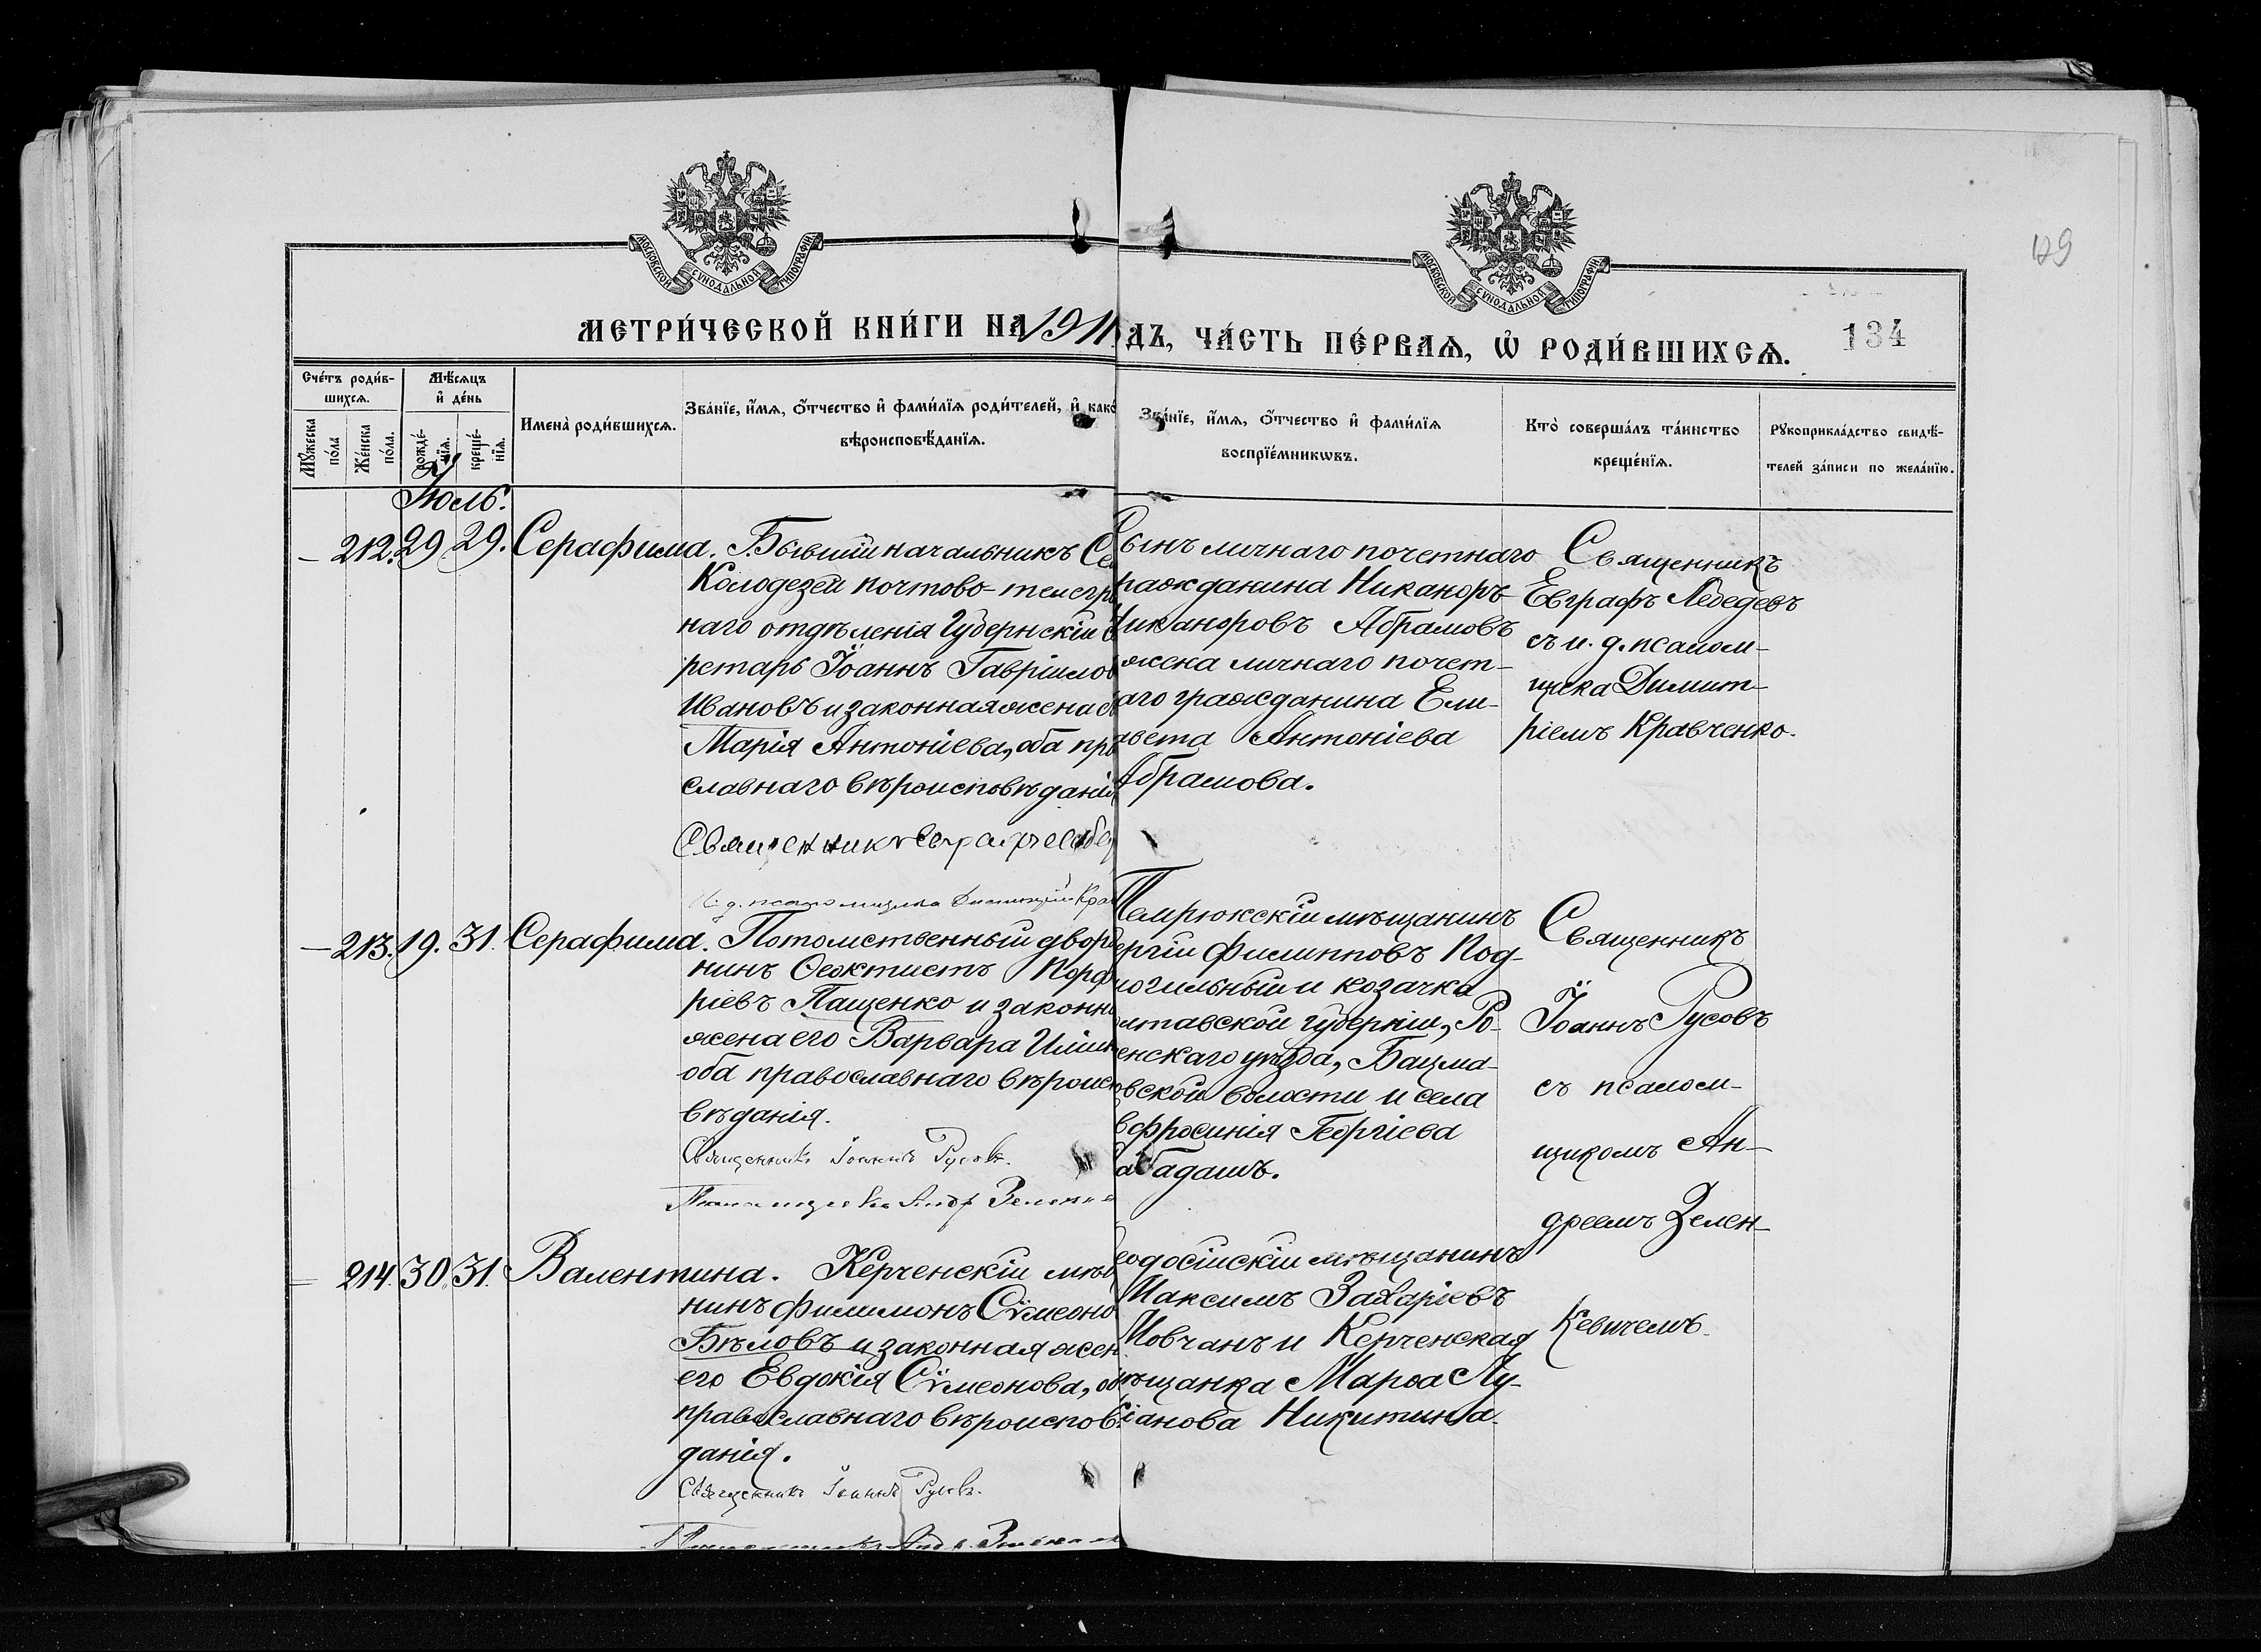 МОСКОВСКОЙ СѴНОДАЛЬНОЙ ТИПОГРАФІИ
МОСКОВСКОЙ СѴНОДАЛЬНОЙ ТИПОГРАФІИ
129
МЕТРИ́ЧЕСКОЙ КНИ́ГИ НА 1911
ДЪ, ЧА́СТЬ ПЕ́РВАѦ, Ѡ҆ РОДИ́ВШИХСѦ.
134
Сче́тъ роди́в-
шихсѧ.
Мꙋ́жеска
по́ла
Же́нска
по́ла.
Мѣ́сѧцъ
и҆ де́нь
рожде́-
нїѧ.
креще́-
нїѧ.
Имена̀ роди́вшихсѧ.
Зва́нїе, и҆́мѧ, о҆́тчество и҆ фами́лїѧ роди́телей, и҆ како́
вѣроисповѣ́данїѧ.
Зва́нїе, и҆́мѧ, о҆́тчество и҆ фами́лїѧ
воспрїе́мникѡвъ.
Кто̀ соверша́лъ та́инство
креще́нїѧ.
Рꙋкоприкла́дство свидѣ́-
телей за́писи по жела́нїю.
Іюль.
– 212. 29 29. Серафима.
Бывшій начальникъ Се
Колодезей почтово-телегр
наго отдѣленія Губернскій с
ретарь Іоаннъ Гавріилов
Ивановъ и законная жена е
Марія Антоніева, оба пра
славнаго вѣроисповѣданія
Священникъ Евграфъ Лебед
И. д. псаломщика Димитрій Крав
Сынъ личнаго почетнаго
ражданина Никаноръ
Никаноровъ Абрамовъ
жена личнаго почет-
аго гражданина Ели-
авета Антоніева
Абрамова.
Священникъ
Евграфъ Лебедевъ
съ и. д. псалом-
щика Димит-
ріемъ Кравченко.
– 213. 19. 31. Серафима.
Потомственный дворя
нинъ Ѳеоктистъ Порфи
ріевъ Пащенко и законна
жена его Варвара Ильин
оба православнаго вѣроиспо
вѣданія.
Священникъ Іоаннъ Русовъ.
Псаломщикъ Андр. Зеленке
Темрюкскій мѣщанинъ
ергій Филипповъ Под-
могильный и козачка
олтавской губерніи, Ро-
енскаго уѣзда, Бацма-
овской волости и села
Ефросинія Георгіева
абадашъ.
Священникъ
Іоаннъ Русовъ
съ псалом-
щикомъ Ан-
дреемъ Зелен-
кевичемъ.
– 214. 30. 31. Валентина.
Керченскій мѣща
нинъ Филимонъ Сѵмеоно
Бѣловъ и законная жен
его Евдокія Сѵмеонова, об
православнаго вѣроисповѣ
данія.
Священникъ Іоаннъ Русовъ.
Псаломщикъ Андр. Зеленке
еодосійскій мѣщанинъ
Максимъ Захаріевъ
Мовчанъ и Керченская
мѣщанка Марѳа Лу-
кіанова Никитина.